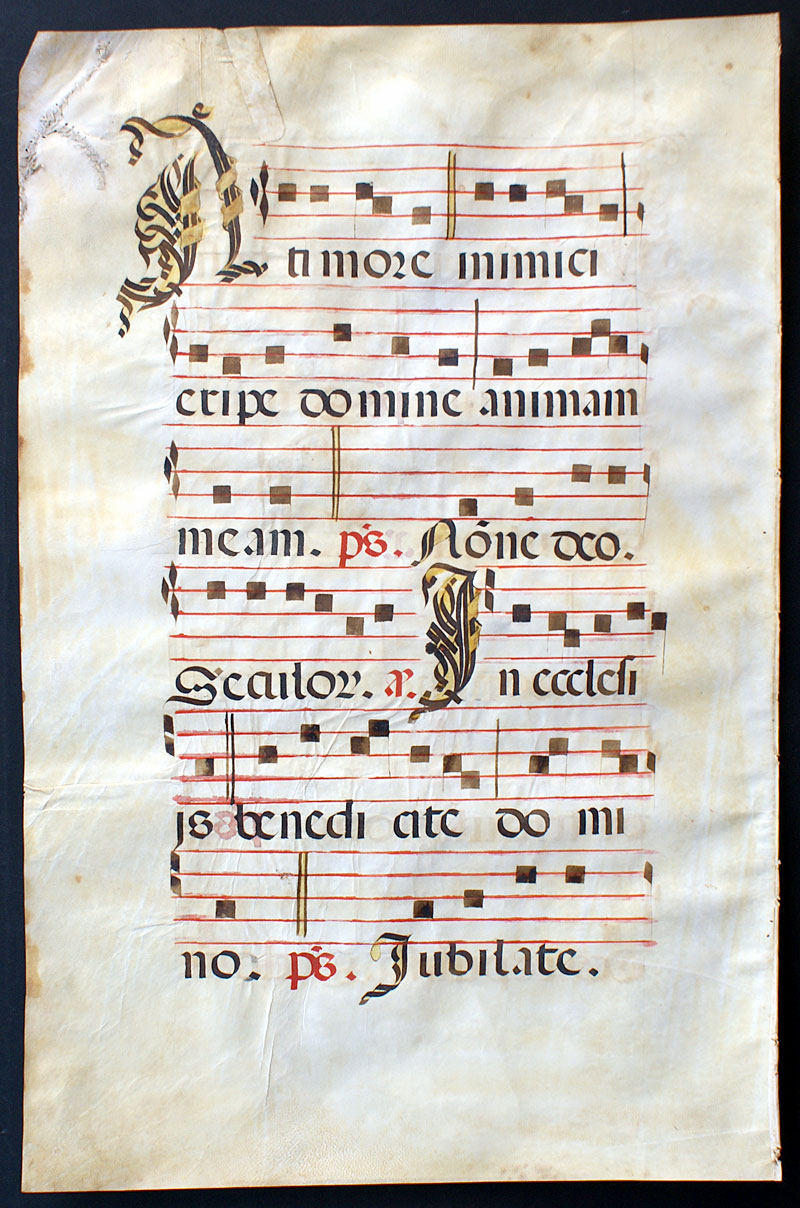 A timore inimici
eripe domine animam
meam. ps. Nõne deo.
Seculoꝝ. a. In ecclesi
is benedi cite do mi
no. ps. Jubilate.